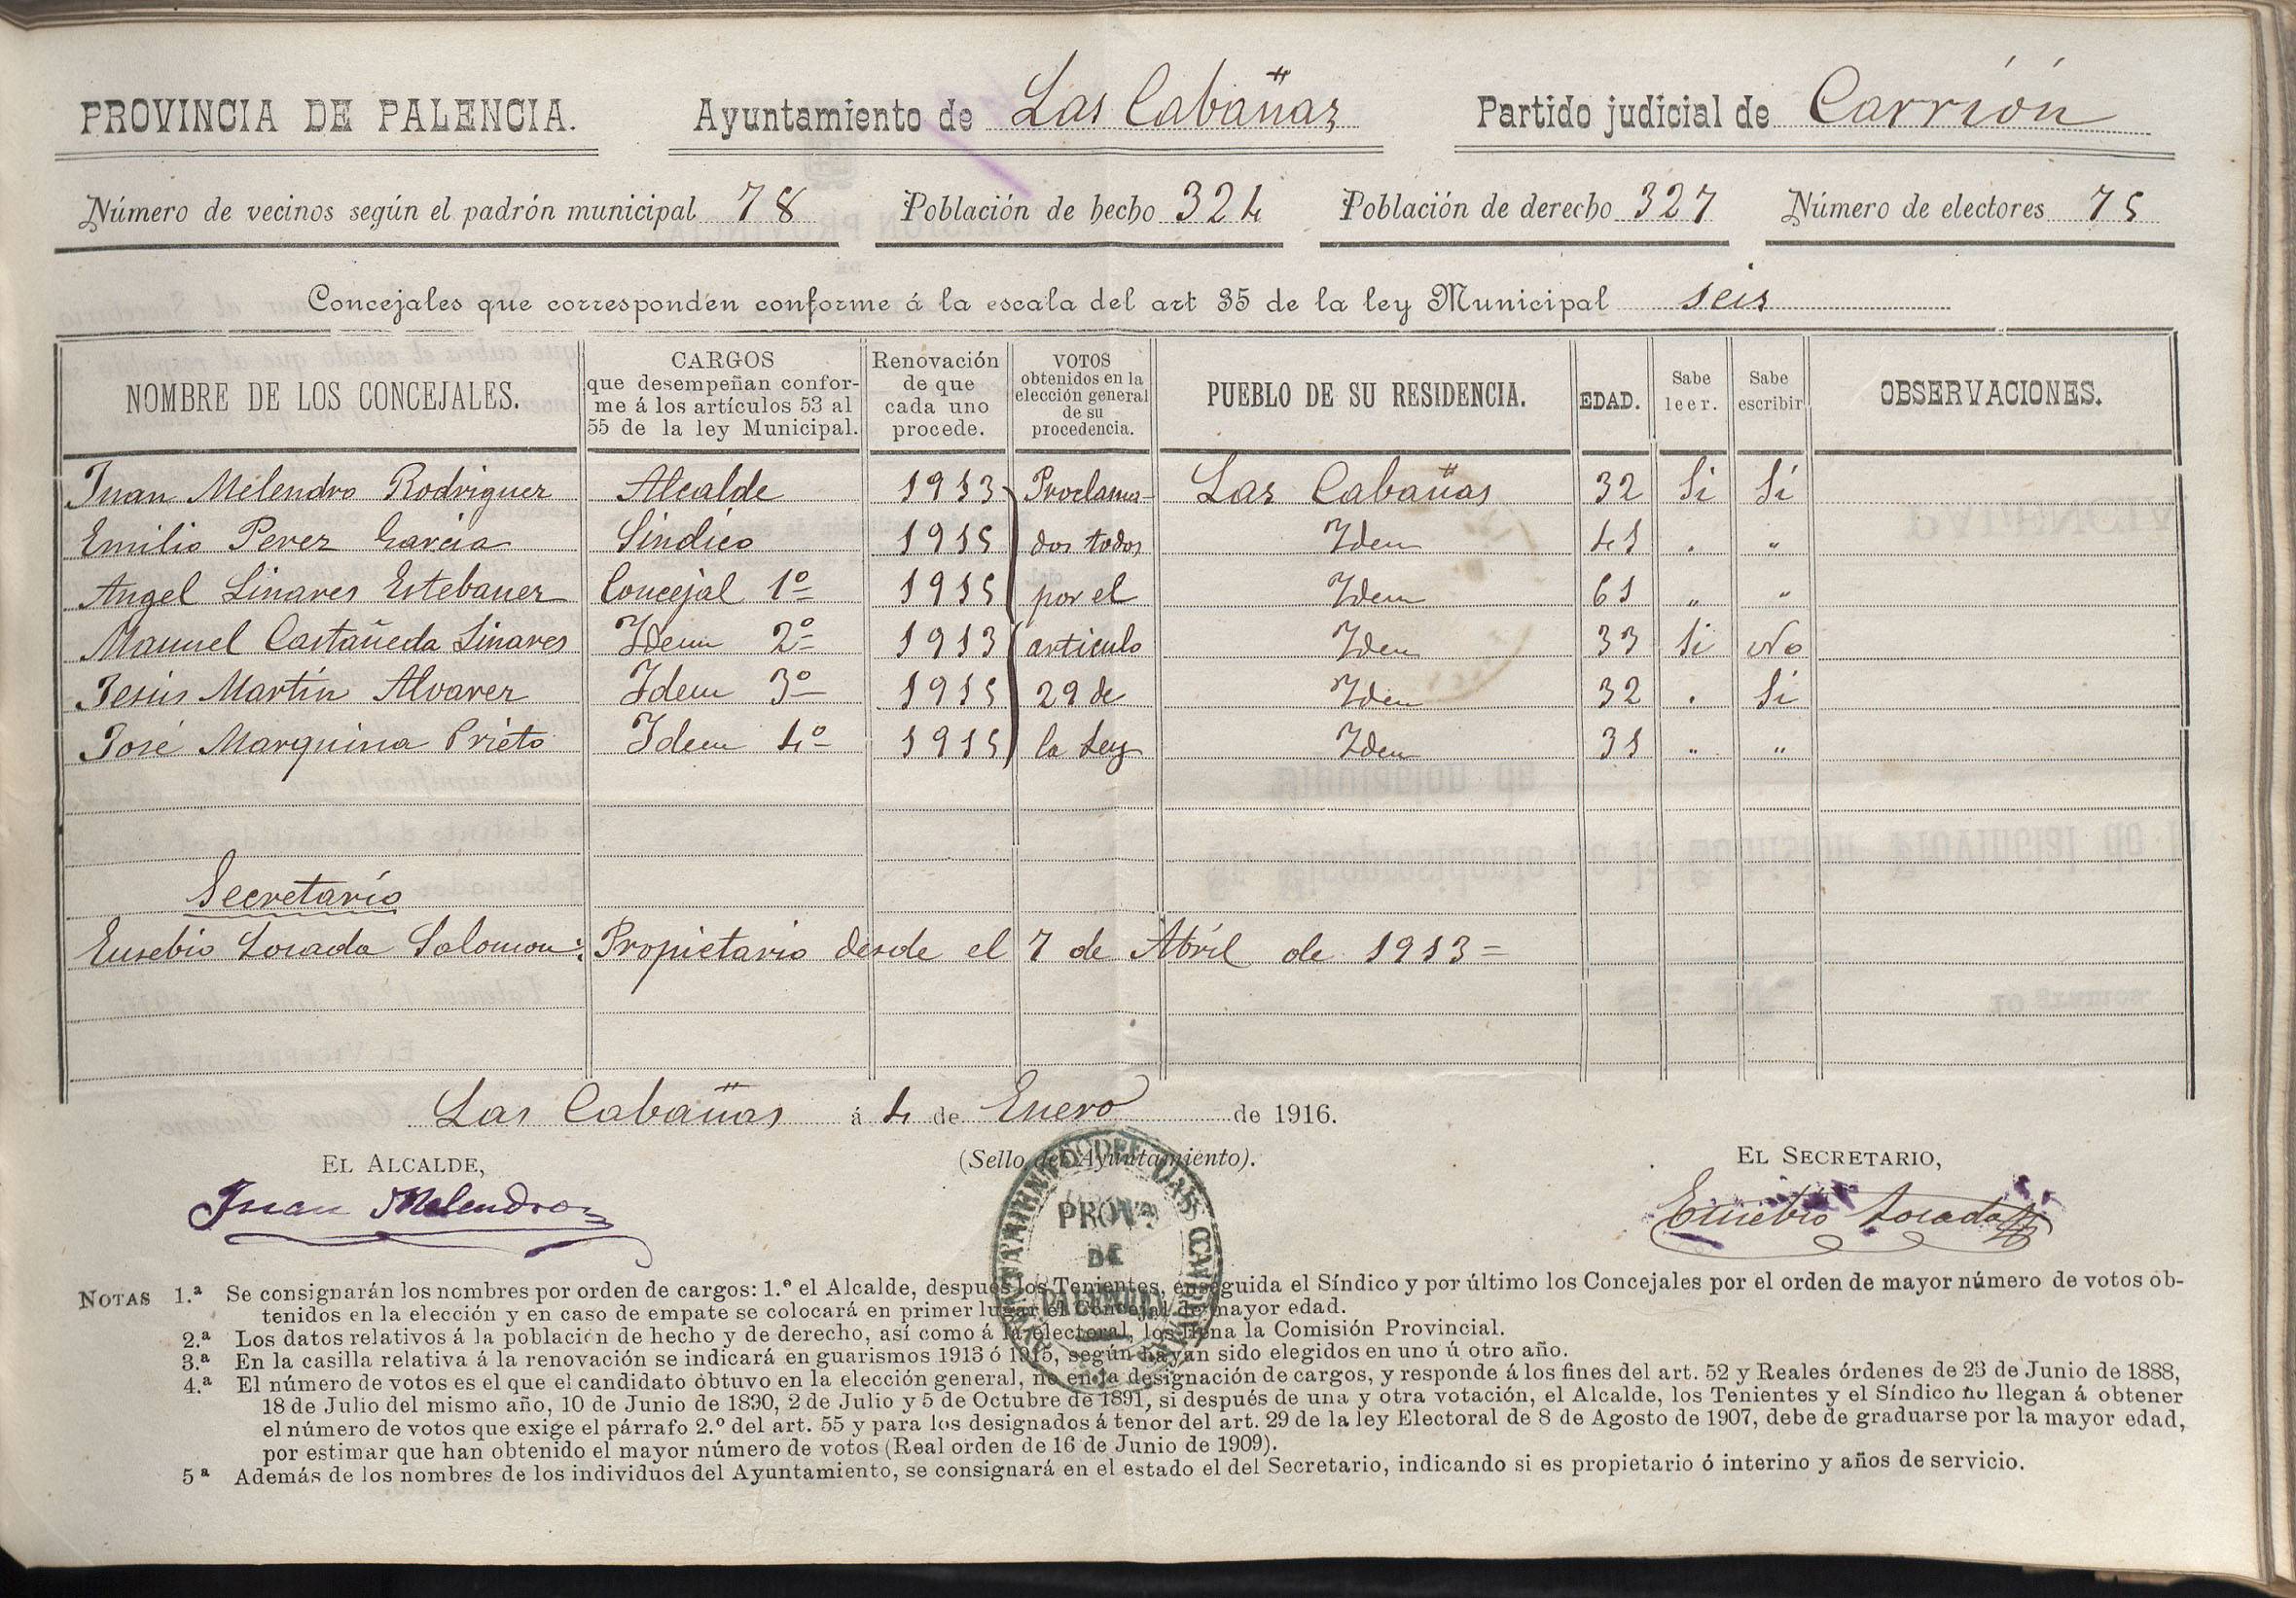 PROVINCIA DE PALENCIA. Ayuntamiento de Las Cabañas Partido judicial de Carrión
Número de vecinos según el padrón municipal 78 Población de hecho 324 Población de derecho 327 Número de electores 75
Concejales que corresponden conforme á la escala del art 35 de la ley Municipal seis
NOMBRE DE LOS CONCEJALES. CARGOS que desempeñan conforme á los artículos 53 al 55 de la ley Municipal. Renovación de que cada uno procede. VOTOS obtenidos en la elección general de su procedencia. PUEBLO DE SU RESIDENCIA. EDAD. Sabe leer. Sabe escribir OBSERVACIONES.
Juan Melendro Rodriguez Alcalde 1913 Proclama- Las Cabañas 32 Si Sí
Emilio Perez Garcia Sindico 1915 dos todos Idem 41 . "
Angel Linares Estebanez Concejal 1º 1915 por el Idem 61 " "
Manuel Castañeda Linares Idem 2º 1913 articulo Idem 33 Si No
Jesús Martín Alvarez Idem 3º 1915 29 de Idem 32 . Si
José Marquina Prieto Idem 4º 1915 la Ley Idem 31 " "
Secretarío
Eusebio Losada Salomon: Propietario desde el 7 de Abríl de 1913=
Las Cabañas á 4 de Enero de 1916.
EL ALCALDE, (Sello del Ayuntamiento). EL SECRETARIO,
Juan Melendro Eusebio Losada
PROVª
DE
NOTAS 1.ª Se consignarán los nombres por orden de cargos: 1.º el Alcalde, despues los Tenientes, enseguida el Síndico y por último los Concejales por el orden de mayor número de votos ob-
tenidos en la elección y en caso de empate se colocará en primer lugar el Concejal de mayor edad.
2.ª Los datos relativos á la población de hecho y de derecho, así como á la electoral, los llena la Comisión Provincial.
3.ª En la casilla relativa á la renovación se indicará en guarismos 1913 ó 1915, según hayan sido elegidos en uno ú otro año.
4.ª El número de votos es el que el candidato obtuvo en la elección general, no en la designación de cargos, y responde á los fines del art. 52 y Reales órdenes de 23 de Junio de 1888,
18 de Julio del mismo año, 10 de Junio de 1890, 2 de Julio y 5 de Octubre de 1891, si después de una y otra votación, el Alcalde, los Tenientes y el Síndico no llegan á obtener
el número de votos que exige el párrafo 2.º del art. 55 y para los designados á tenor del art. 29 de la ley Electoral de 8 de Agosto de 1907, debe de graduarse por la mayor edad,
por estimar que han obtenido el mayor número de votos (Real orden de 16 de Junio de 1909).
5ª Además de los nombres de los individuos del Ayuntamiento, se consignará en el estado el del Secretario, indicando si es propietario ó interino y años de servicio.